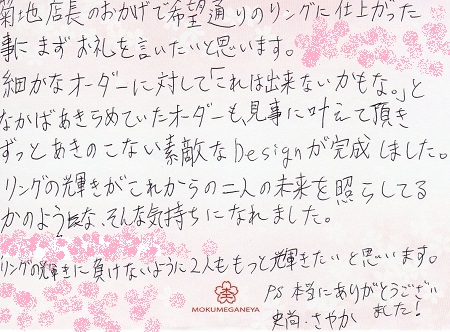 菊地店長のおかげで希望通りのリングに仕上がった
事にまずお礼を言いたいと思います。
細かなオーダーに対して「これは出来ないかもな。」と
なかばあきらめていたオーダーも、見事に叶えて頂き
ずっとあきのこない素敵なDesignが完成しました。
リングの輝きがこれからの二人の未来を照らしてる
かのような、そんな気持ちになれました。
リングの輝きに負けないように2人ももっと輝きたいと思います。
PS 本当にありがとうござい
ました!
史尚、さやか
MOKUMEGANEYA